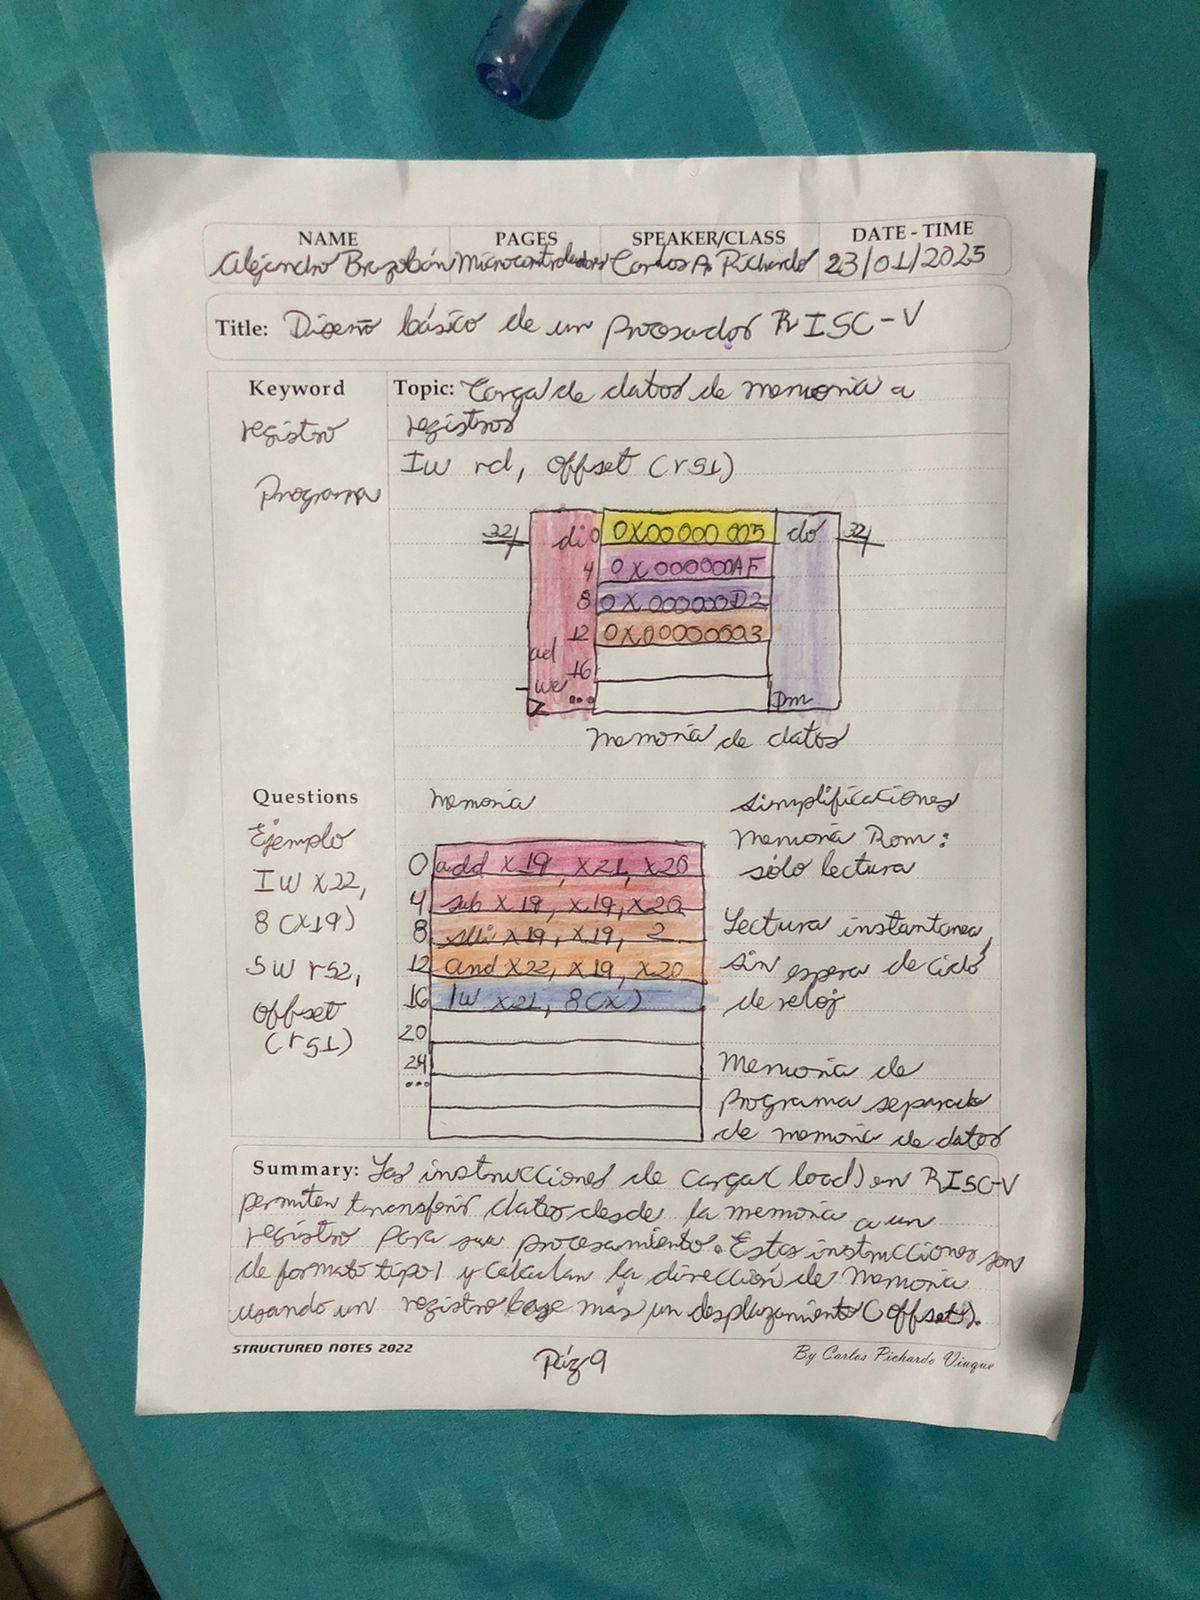 NAME PAGES SPEAKER/CLASS DATE - TIME
Alejandro Brazobán Microcontroladores Carlos A. Pichardo 23/01/2025
Title: Diseño básico de un Procesador RISC-V
Keyword
registro
Programa
Topic: Carga de datos de memoria a
registros
Iw rd, offset (rs1)
32 di 0 0X00000005 do 32
4 0X000000AF
8 0X000000D2
12 0X00000003
ad 16
we ... Dm
Memoria de datos
Questions
Ejemplo
Iw x22,
8(x19)
Sw rs2,
offset
(rs1)
Memoria
0 add x19, x21, x20
4 sub x18, x19, x20
8 slli x19, x19, 2
12 and x22, x19, x20
16 lw x21, 8(x)
20
24
...
simplificaciones
Memoria Rom:
sólo lectura
Lectura instantanea,
sin espera de ciclo
de reloj
Memoria de
Programa separada
de memoria de datos
Summary: Las instrucciones de cargar(load) en RISC-V
permiten transferir datos desde la memoria a un
registro para su procesamiento. Estas instrucciones son
de formato tipo I y calculan la dirección de memoria
usando un registro base más un desplazamiento (offset).
STRUCTURED NOTES 2022
Pág 9
By Carlos Pichardo Viuque